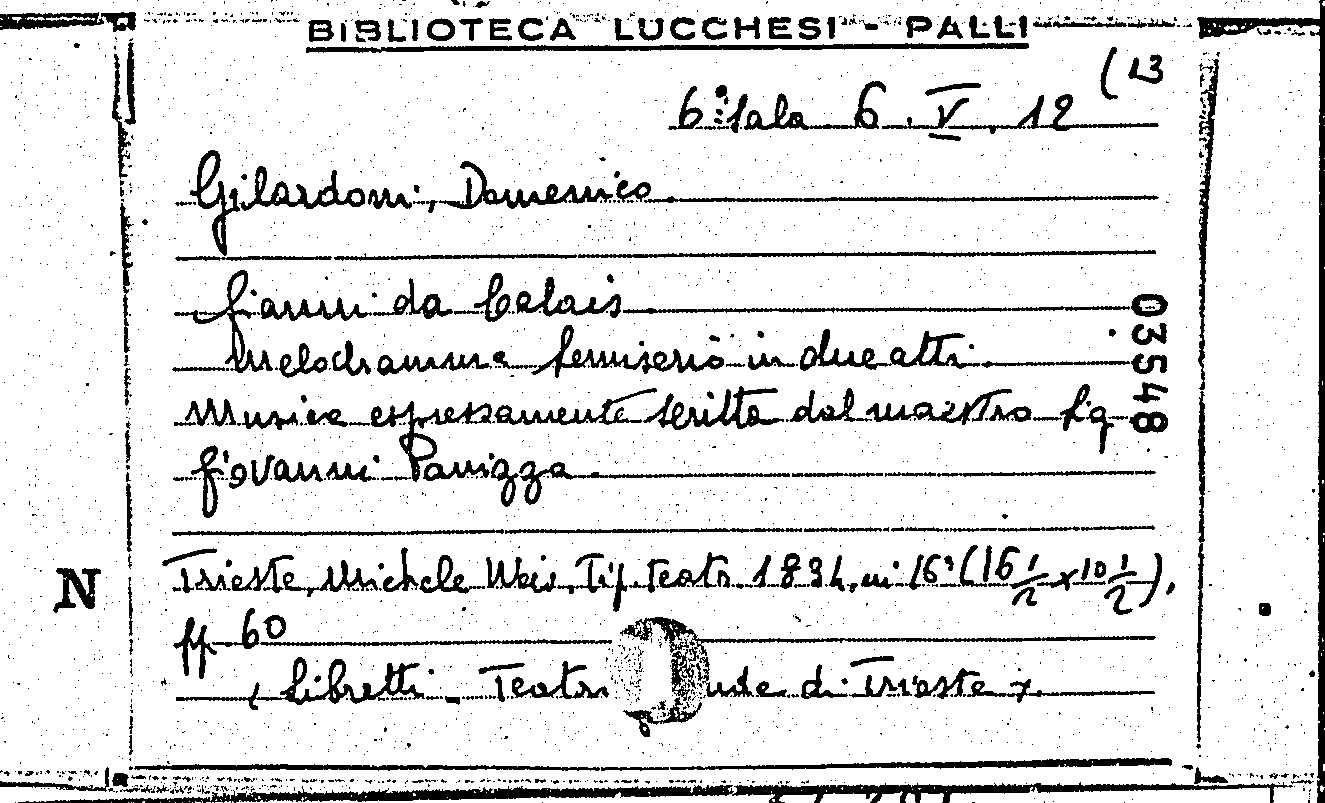 BIBLIOTECA LUCCHESI - PALLI
(13
6ª Sala 6. V. 12
Gilardoni, Domenico.
Gianni da Calais.
Melodramma semiserio in due atti.
Musica espressamente scritta dal maestro Sig
Giovanni Panizza.
03548
Trieste, Michele Weis, Tip. Teatr. 1834, in 16° (16 1/2 x 10 1/2),
N
pp 60
(Libretti - Teatro di Trieste).